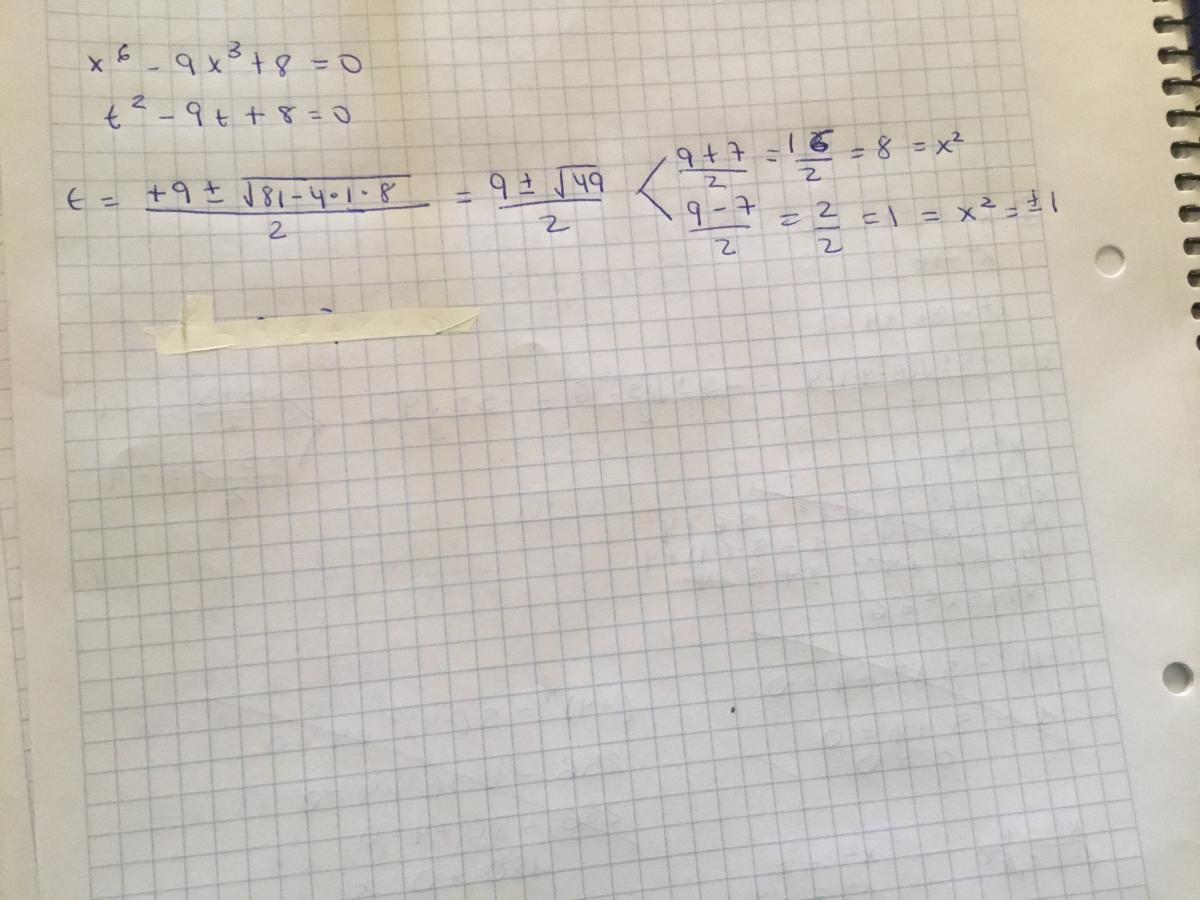 x⁶ - 9x³ + 8 = 0
t² - 9t + 8 = 0
t = (+9 ± √(81 - 4·1·8))/2 = (9 ± √49)/2 < (9 + 7)/2 = 16/2 = 8 = x²
(9 - 7)/2 = 2/2 = 1 = x² = ±1